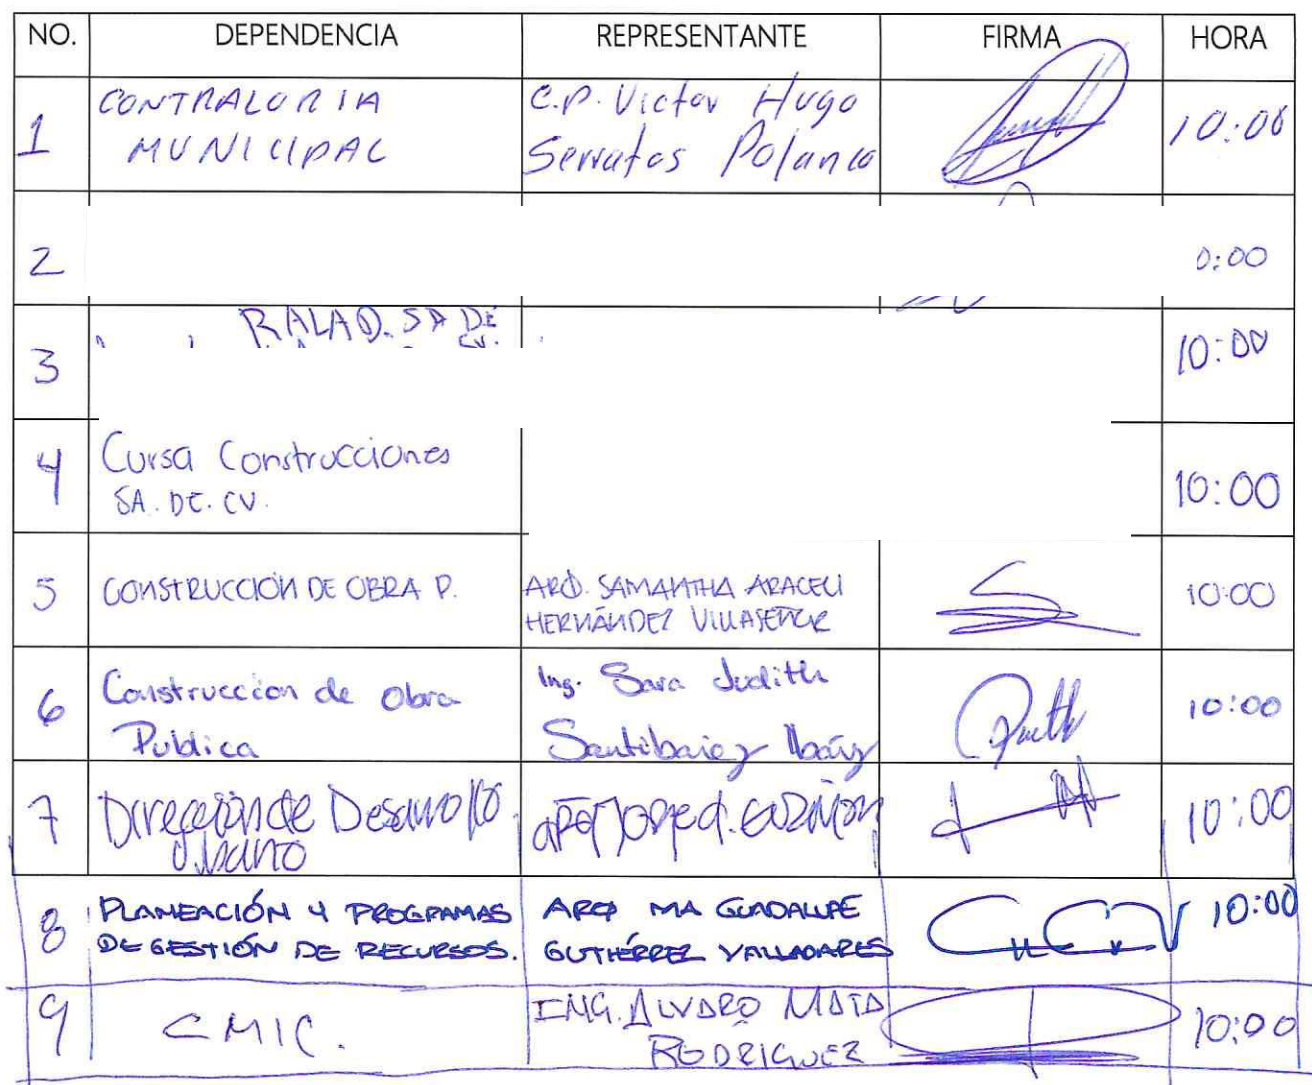 NO. DEPENDENCIA REPRESENTANTE FIRMA HORA
1 CONTRALORIA MUNICIPAL C.P. Victor Hugo Serratos Polanco 10:00
2 0:00
3 RALAD. SA DE CV. 10:00
4 Cursa Construcciones SA. DE. CV. 10:00
5 CONSTRUCCIÓN DE OBRA P. ARQ. SAMANTHA ARACELI HERNÁNDEZ VILLASEÑOR 10:00
6 Construccion de Obra Publica Ing. Sara Judith Santibañez Ibañez 10:00
7 Dirección de Desarrollo Urbano 10:00
8 PLANEACIÓN Y PROGRAMAS DE GESTIÓN DE RECURSOS. ARQ MA GUADALUPE GUTIÉRREZ VALLADARES 10:00
9 CMIC. ING. ALVARO MATA RODRIGUEZ 10:00